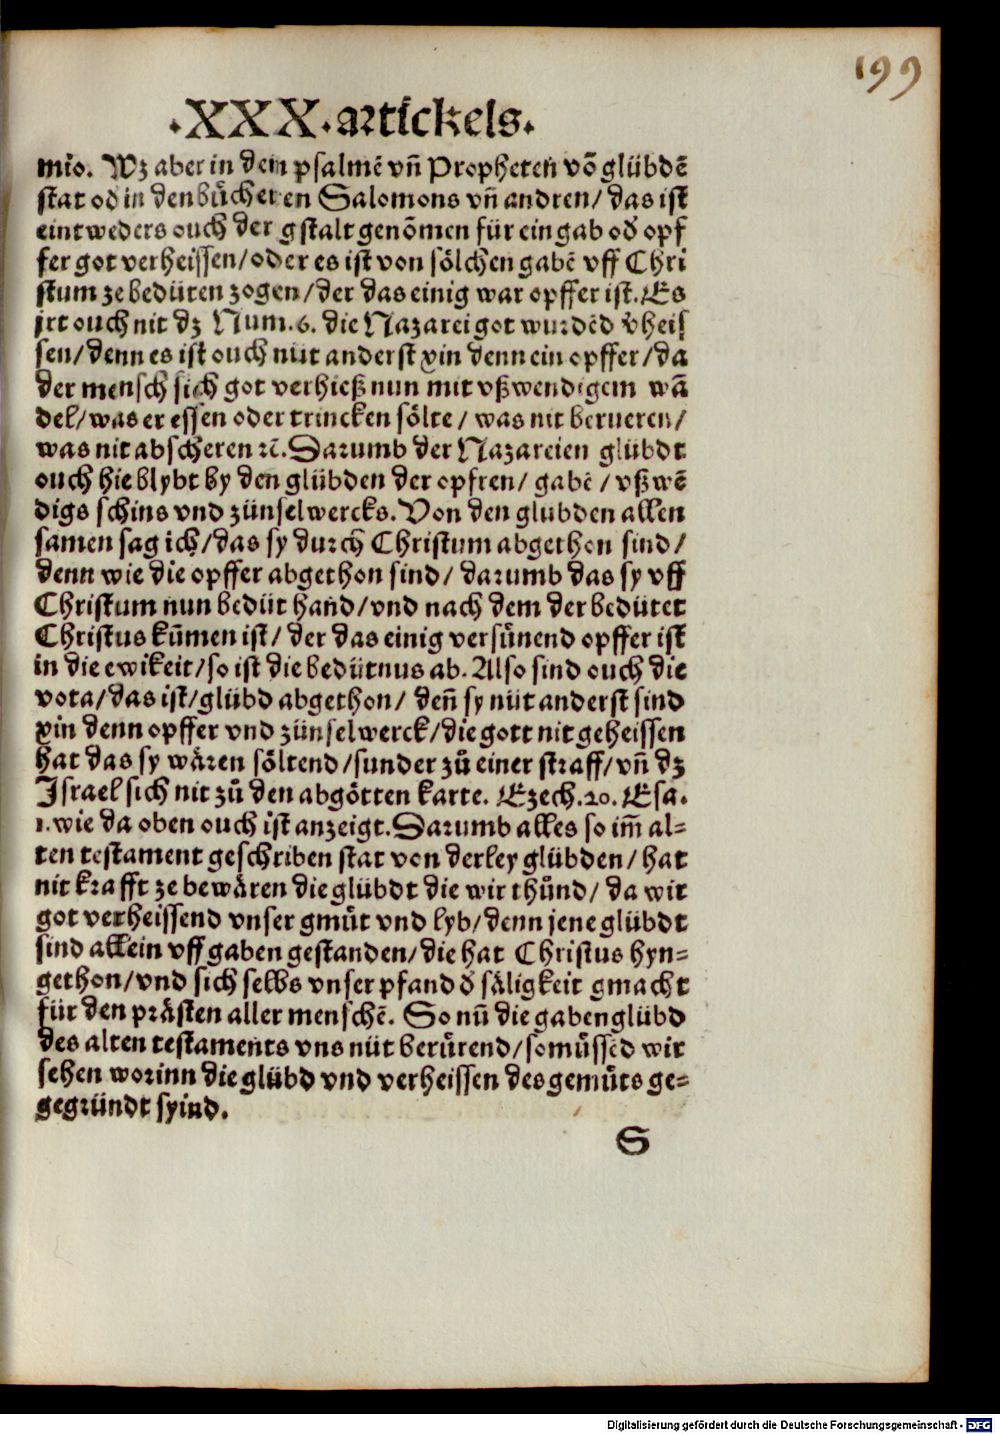 199
·XXX·artickels·
mīo. Wz aber in den psalmē vñ Propheten võ glübdē
stat od in den bůcheren Salomons vñ andren/ das ist
eintweders ouch der gstalt genõmen für ein gab oď opf
fer got verheissen/ oder es ist von sölchen gabē vff Chri
stum ze bedüten zogen/ der das einig war opffer ist. Es
jrt ouch nit dz Num. 6. die Nazarei got wurdēd v̉heis
sen/ denn es ist ouch nüt anderst xin denn ein opffer/ da
der mensch sich got verhieß nun mit vßwendigem wā
del/ was er essen oder trincken sölte/ was nit berueren/
was nit abscheren ꝛc̄. Darumb der Nazareien glübdt
ouch hie blybt by den glübden der opfren/ gabē/ vßwē
digs schins vnd zünselwercks. Von den glubden allen
samen sag ich/ das sy durch Christum abgethon sind/
denn wie die opffer abgethon sind/ darumb das sy vff
Christum nun bedüt hand/ vnd nach dem der bedütet
Christus kūmen ist/ der das einig versůnend opffer ist
in die ewikeit/ so ist die bedütnus ab. Also sind ouch die
vota/ das ist/ glübd abgethon/ deñ sy nüt anderst sind
xin denn opffer vnd zünselwerck/ die gott nit geheissen
hat das sy wären söltend/ sunder zů einer straff/ vñ dz
Israel sich nit zů den abgötten karte. Ezech. 20. Esa.
1. wie da oben ouch ist anzeigt. Darumb alles so im̄ al-
ten testament geschriben stat von derley glübden/ hat
nit krafft ze bewären die glübdt die wir thůnd/ da wir
got verheissend vnser gmůt vnd lyb/ denn jene glübdt
sind allein vff gaben gestanden/ die hat Christus hyn-
gethon/ vnd sich selbs vnser pfand ď säligkeit gmacht
für den prästen aller menschē. So nū die gabenglübd
des alten testaments vns nüt berůrend/ so můssēd wir
sehen worinn die glübd vnd verheissen des gemůts ge-
gegründt syind.
S
Digitalisierung gefördert durch die Deutsche Forschungsgemeinschaft - DFG